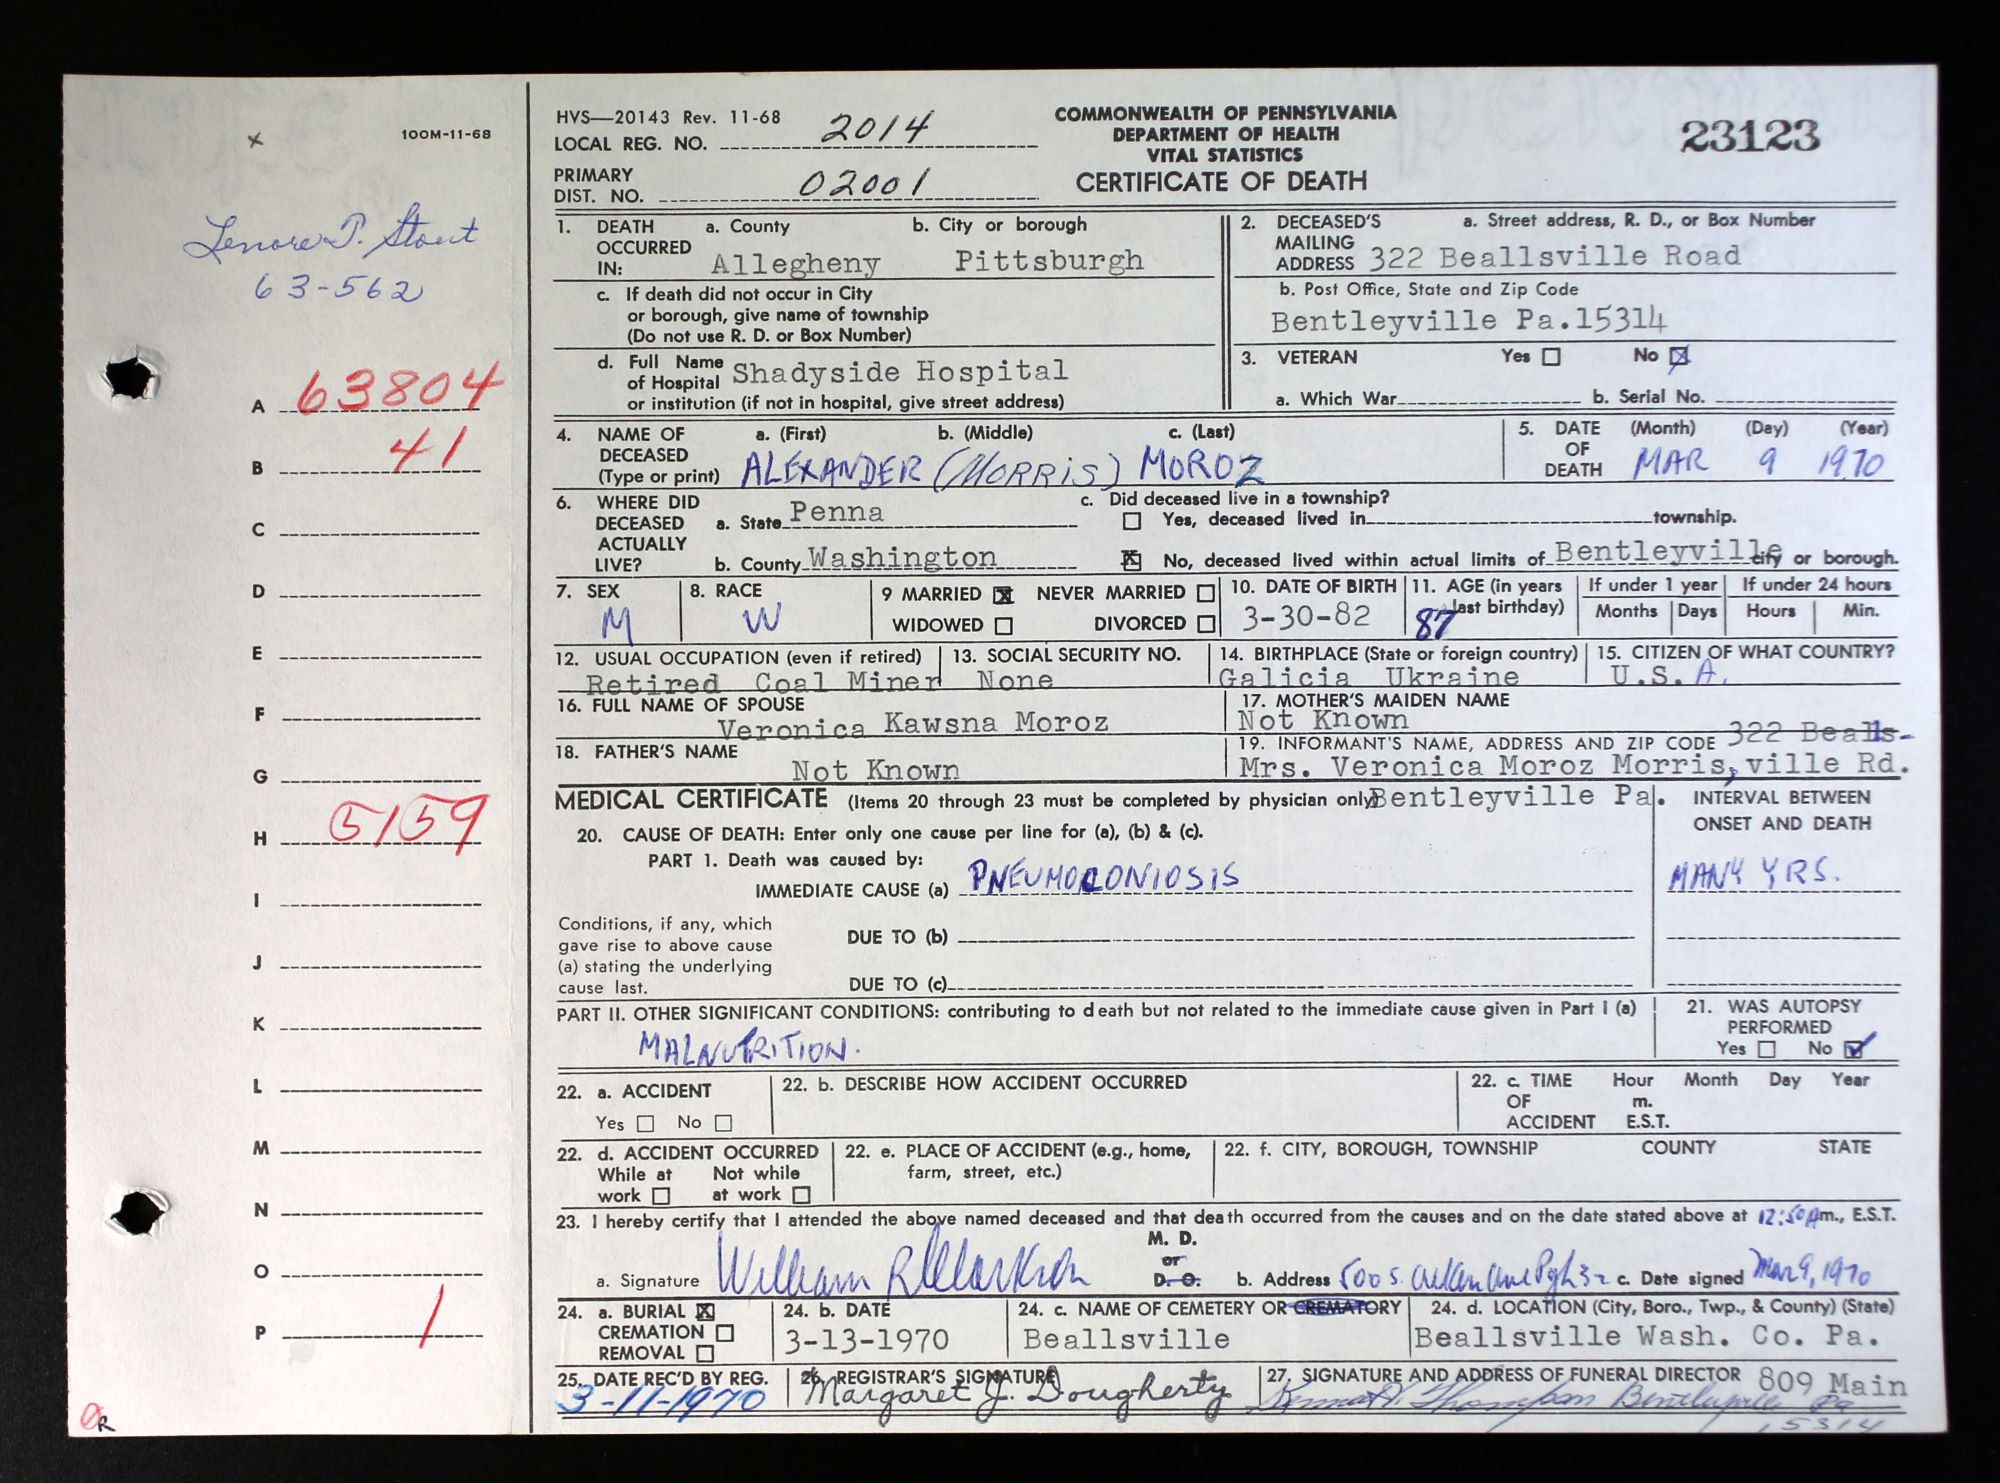 100M-11-68
Lenore P. Stout
63-562
A 63804
B 41
C
D
E
F
G
H 5159
I
J
K
L
M
N
O
P 1
R
HVS—20143 Rev. 11-68
LOCAL REG. NO. 2014
PRIMARY
DIST. NO. 02001
COMMONWEALTH OF PENNSYLVANIA
DEPARTMENT OF HEALTH
VITAL STATISTICS
CERTIFICATE OF DEATH
23123
1. DEATH OCCURRED IN: a. County b. City or borough
Allegheny Pittsburgh
c. If death did not occur in City
or borough, give name of township
(Do not use R. D. or Box Number)
d. Full Name of Hospital Shadyside Hospital
or institution (if not in hospital, give street address)
2. DECEASED'S MAILING ADDRESS a. Street address, R. D., or Box Number
322 Beallsville Road
b. Post Office, State and Zip Code
Bentleyville Pa.15314
3. VETERAN Yes No
a. Which War b. Serial No.
4. NAME OF DECEASED (Type or print) a. (First) b. (Middle) c. (Last)
ALEXANDER (MORRIS) MOROZ
5. DATE OF DEATH (Month) (Day) (Year)
MAR 9 1970
6. WHERE DID DECEASED ACTUALLY LIVE? a. State Penna
b. County Washington
c. Did deceased live in a township?
Yes, deceased lived in township.
No, deceased lived within actual limits of Bentleyville city or borough.
7. SEX
M
8. RACE
W
9 MARRIED NEVER MARRIED
WIDOWED DIVORCED
10. DATE OF BIRTH
3-30-82
11. AGE (in years last birthday)
87
If under 1 year
Months Days
If under 24 hours
Hours Min.
12. USUAL OCCUPATION (even if retired)
Retired Coal Miner
13. SOCIAL SECURITY NO.
None
14. BIRTHPLACE (State or foreign country)
Galicia Ukraine
15. CITIZEN OF WHAT COUNTRY?
U.S.A.
16. FULL NAME OF SPOUSE
Veronica Kawsna Moroz
17. MOTHER'S MAIDEN NAME
Not Known
18. FATHER'S NAME
Not Known
19. INFORMANT'S NAME, ADDRESS AND ZIP CODE 322 Bealls-
Mrs. Veronica Moroz Morris, ville Rd.
Bentleyville Pa.
MEDICAL CERTIFICATE (Items 20 through 23 must be completed by physician only)
20. CAUSE OF DEATH: Enter only one cause per line for (a), (b) & (c).
PART 1. Death was caused by:
IMMEDIATE CAUSE (a) PNEUMOCONIOSIS
INTERVAL BETWEEN
ONSET AND DEATH
MANY YRS.
Conditions, if any, which
gave rise to above cause
(a) stating the underlying
cause last.
DUE TO (b)
DUE TO (c)
PART II. OTHER SIGNIFICANT CONDITIONS: contributing to death but not related to the immediate cause given in Part I (a)
MALNUTRITION.
21. WAS AUTOPSY
PERFORMED
Yes No
22. a. ACCIDENT
Yes No
22. b. DESCRIBE HOW ACCIDENT OCCURRED
22. c. TIME OF ACCIDENT Hour Month Day Year
m.
E.S.T.
22. d. ACCIDENT OCCURRED
While at work Not while at work
22. e. PLACE OF ACCIDENT (e.g., home,
farm, street, etc.)
22. f. CITY, BOROUGH, TOWNSHIP COUNTY STATE
23. I hereby certify that I attended the above named deceased and that death occurred from the causes and on the date stated above at 12:50 Am., E.S.T.
a. Signature William R
M. D.
or
D. O.
b. Address 500 S. Aiken Ave Pgh 32 c. Date signed Mar 9, 1970
24. a. BURIAL
CREMATION
REMOVAL
24. b. DATE
3-13-1970
24. c. NAME OF CEMETERY OR CREMATORY
Beallsville
24. d. LOCATION (City, Boro., Twp., & County) (State)
Beallsville Wash. Co. Pa.
25. DATE REC'D BY REG.
3-11-1970
26. REGISTRAR'S SIGNATURE
Margaret J. Dougherty
27. SIGNATURE AND ADDRESS OF FUNERAL DIRECTOR 809 Main
Thompson Bentleyville Pa
15314